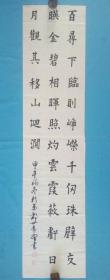 百尋下臨則崢嶸千仞珠壁交
暎金碧相暉照灼雲霞蔽虧日
月觀其移山迴澗
甲午初冬於 書